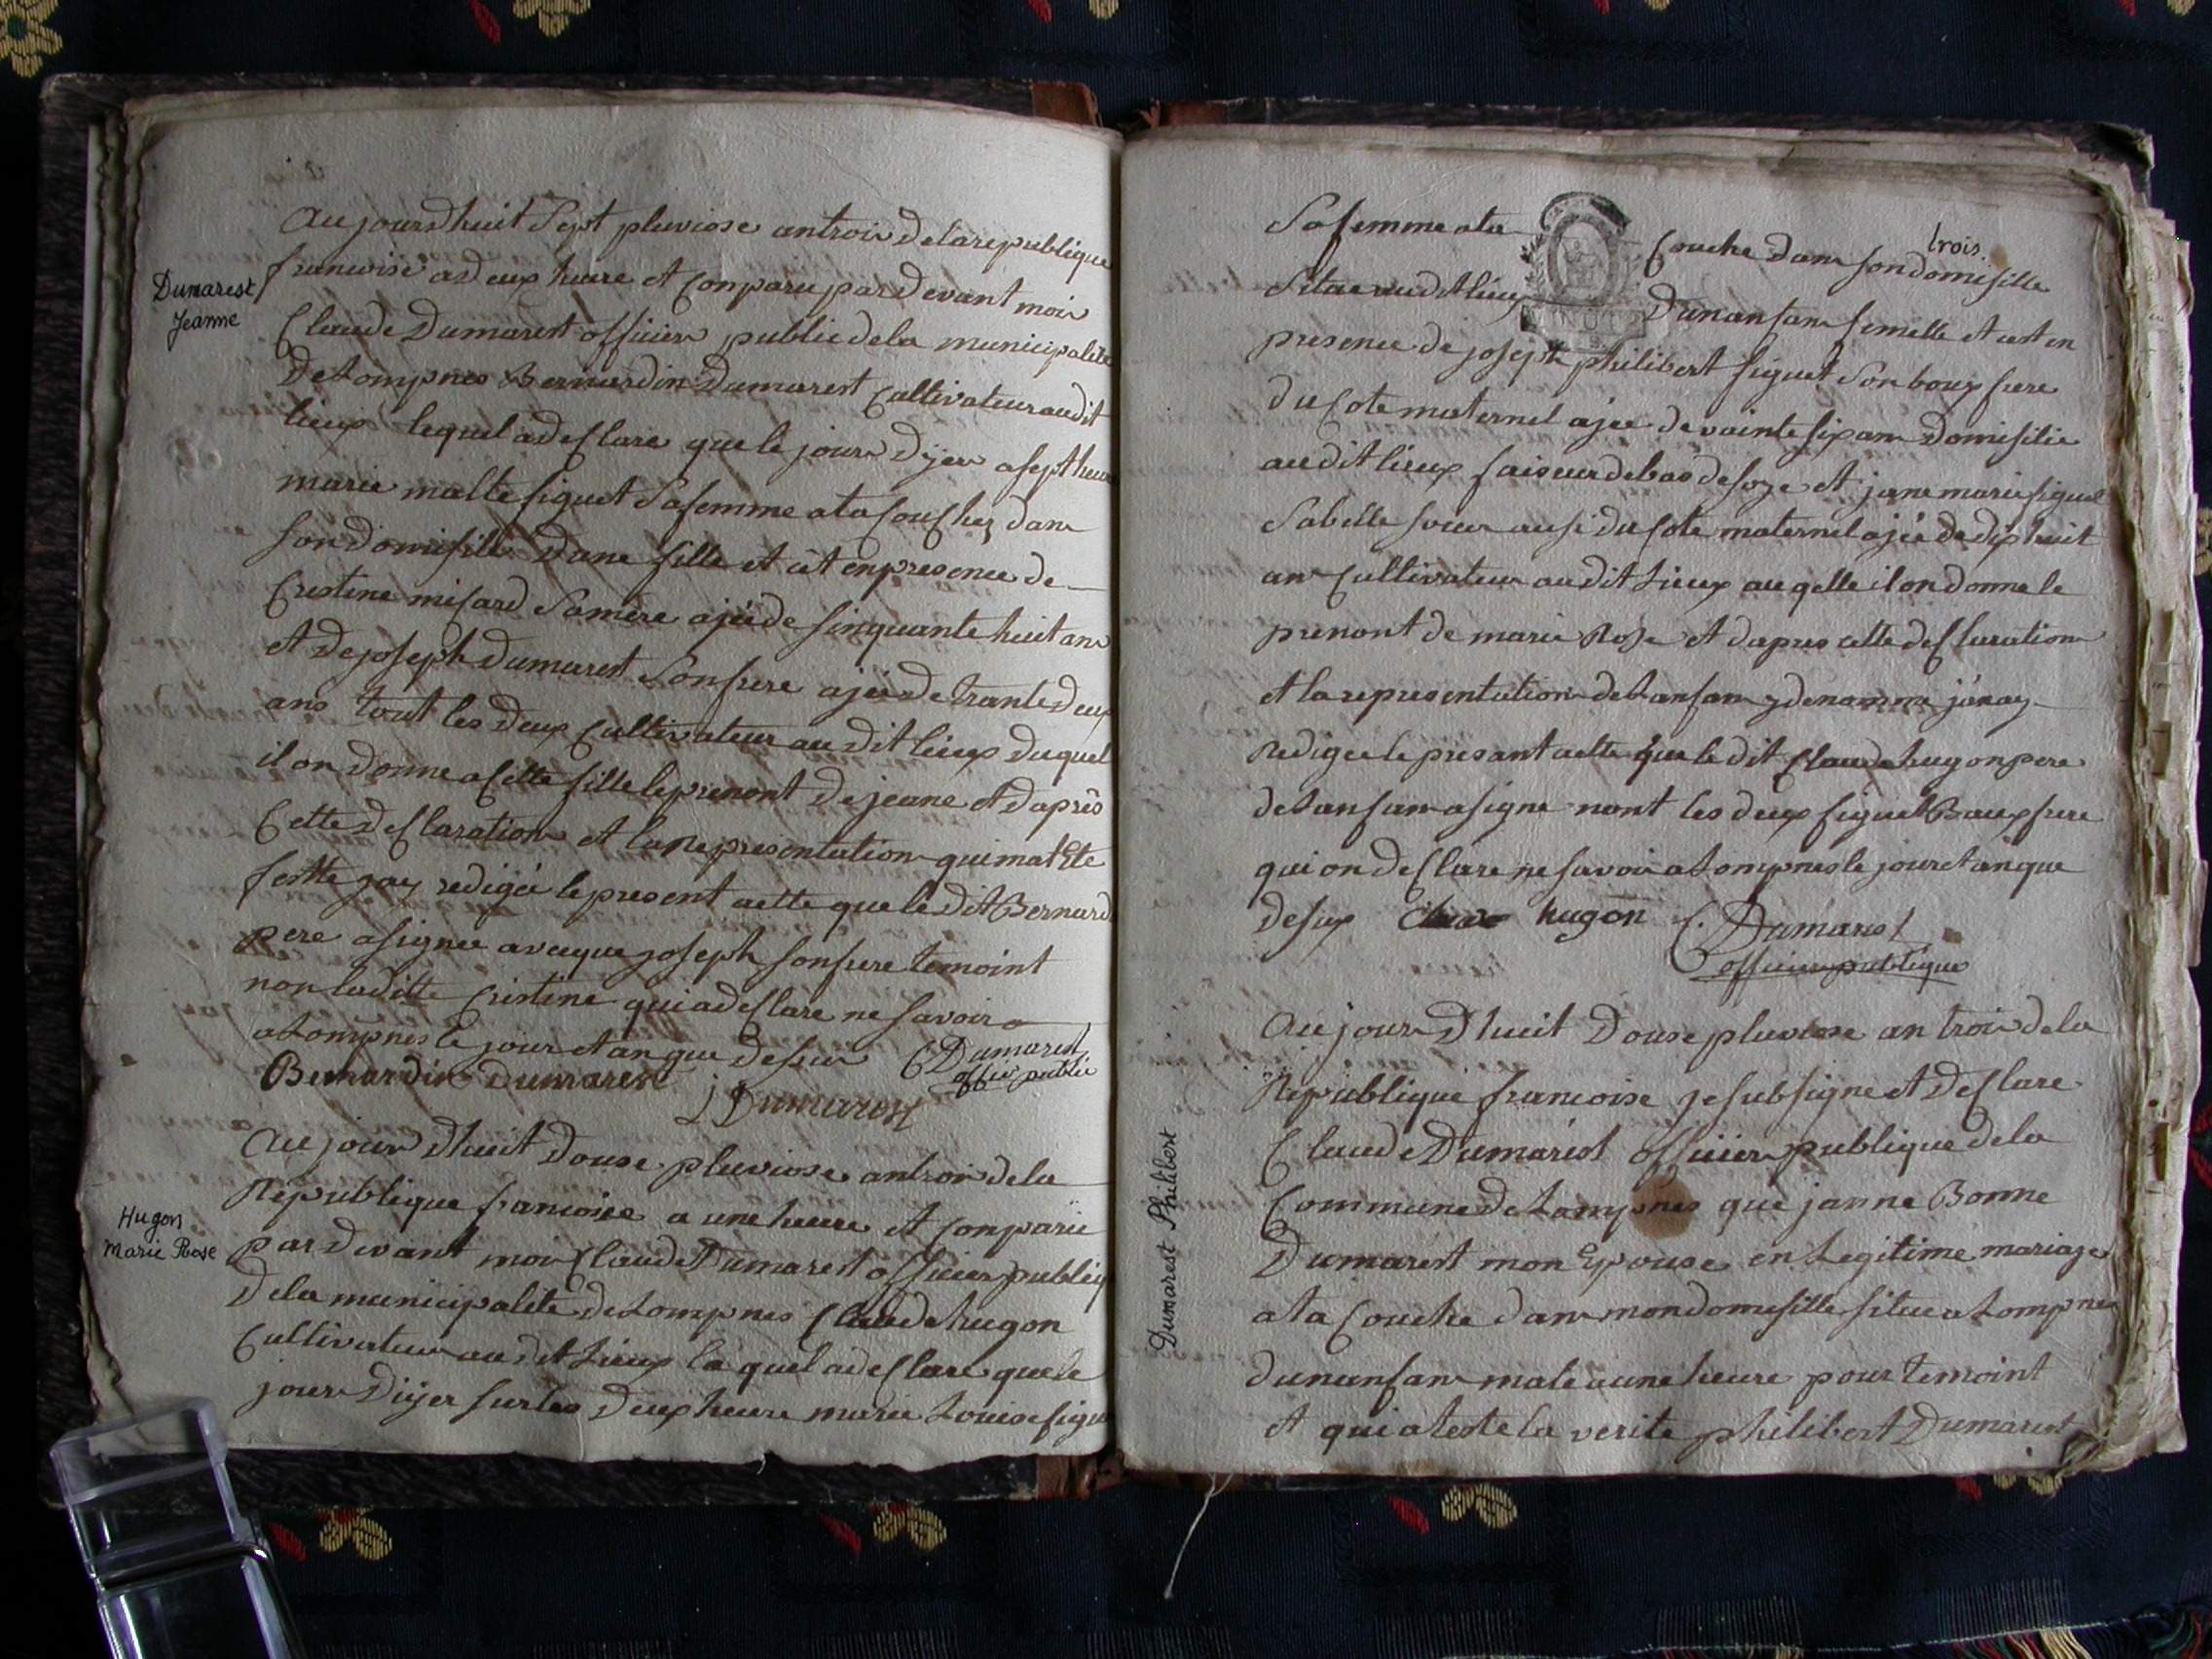 Dumarest
Jeanne
Aujourdhuit Sept pluviose antrois delarepublique
francoise adeux heure et Conparu pardevant moi
Claude Dumarest officier public dela municipalite
DeLompnes Bernardin Dumarest Cultivateur audit
lieux lequel adesclare que le jour Dyer asept heure
marie malte figuet Safemme ata Couchez dans
Son domisille Dune fille et cet enpresence de
Cristine misard Samere ajée de sinquante huit ans
et De joseph Dumarest Son frere ajée de trante deux
ans tout les deux Cultivateur audit lieux duquel
il on donne a Cette fille le prenont De jeane et Daprês
Cette desclaration et la Representation qui mat Ete
fette jay redigée le present aette que le dit Bernard
pere a signee avecque joseph son frere temoint
non laditte Cristine qui adesclare ne savoir
a Lompnes le jour et an que dessur C Dumarest
offier public
Bernardin Dumarest
J Dumarest
Hugon
Marie Rose
Aujour dhuit Douse pluviose antrois dela
Republique francoise a une heure et Conparu
pardevant moi Claude Dumarest officier publiq
Dela municipalite de Lompnes Claude hugon
Cultivateur audit Lieux le quel adesclare que le
jour Diyer sur les Deux heure marie Louise figue
trois
Safemme ata Couche dans son domisille
Situe audit lieux Dunanfan femelle et cest en
presence de joseph philibert figuet son boux frere
du Cote maternel ajee de vainte six ans Domisilie
audit lieux faiseur de bas de soye et jane marie figuet
Sabelle sœur ausi du Cote maternel ajée de dix huit
ans Cultivateur audit Lieux au qelle il on donne le
prenont de marie Rose et dapres cette desclaration
et la representation de Lanfan y denomme j'anay
Redigee le presant aette que le dit Claude hugon pere
de Lanfan a signe nont les deux figuet Baux frere
qui on desclare ne savoir a Lompnes le jour et an que
desux Claude hugon C. Dumarest
officier publique
Dumarest Philibert
Aujour Dhuit Douse pluviose an trois dela
Republique francoise je subsigne et Desclare
Claude Dumarest officier publique dela
Commune de Lompnes que janne Bonne
Dumarest mon Epouse en Legitime mariage
ata Couche dans mon domisille situe a Lompnes
dunanfan male a une heure pour temoint
et qui ateste la verite philibert Dumarest